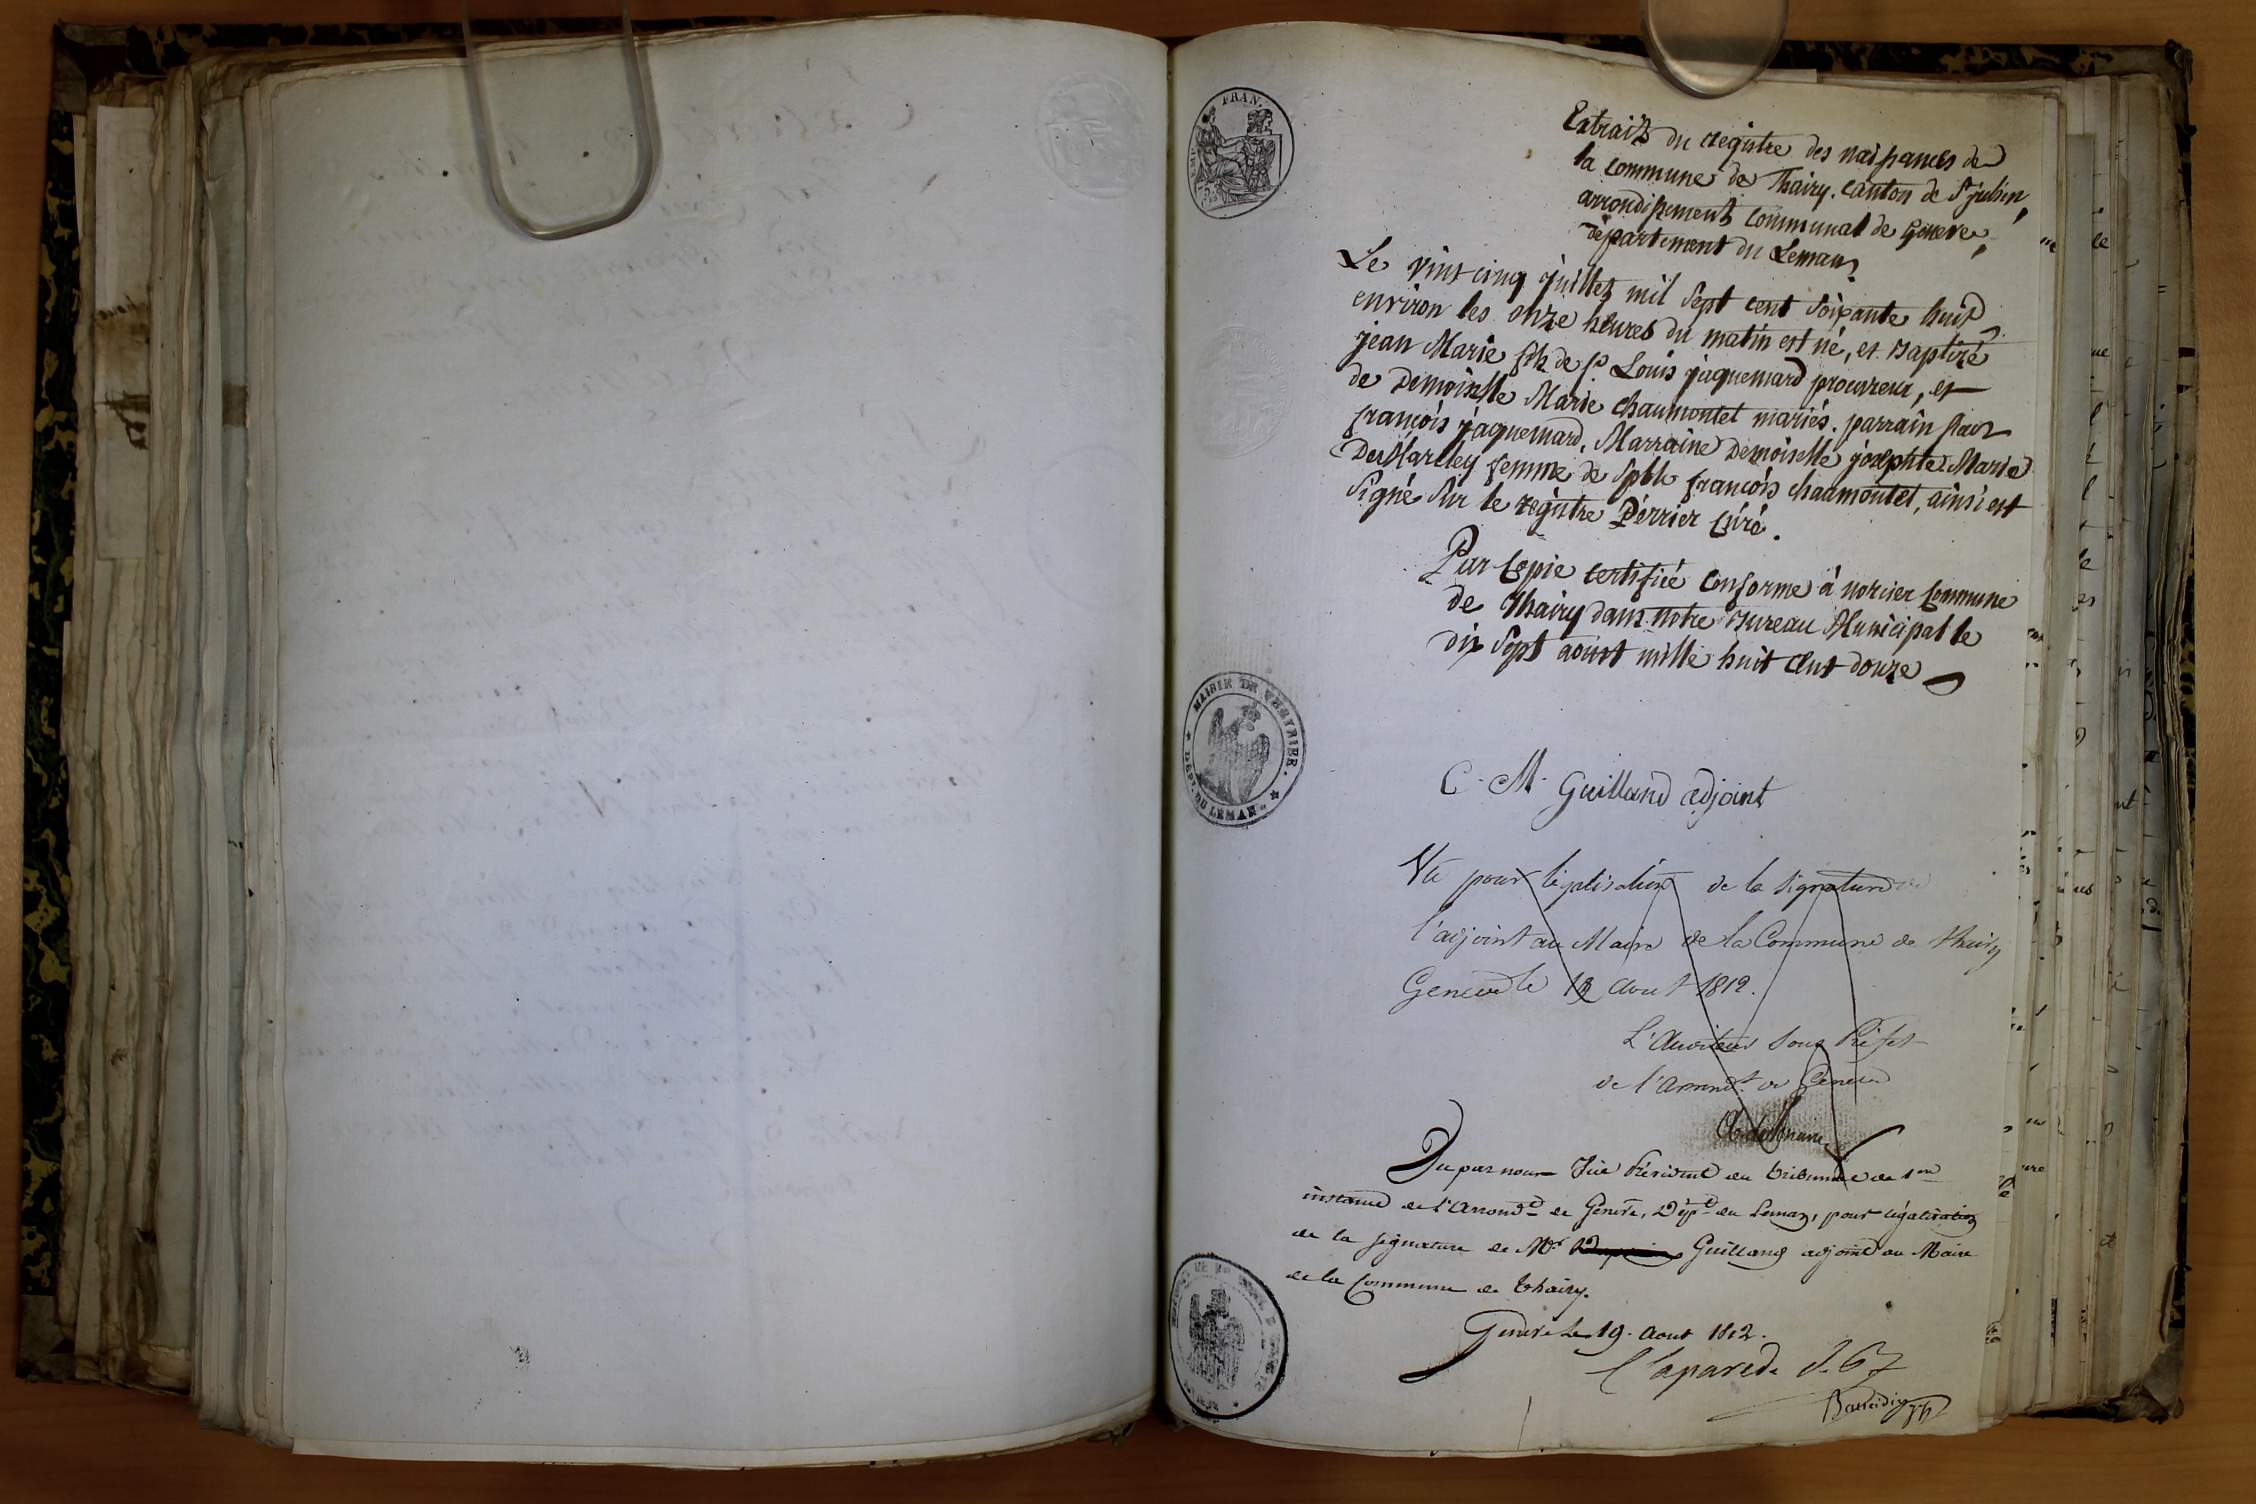 FRAN.
Extrait du registre des naissances de
la commune de Thairy. Canton de St julien,
arrondissement Communal de Geneve,
département du Leman.
Le vint cinq juillet mil sept cent soixante huit
environ les onze heures du matin est né, et baptizé
jean Marie fils de Sr Louis jaquemard procureur, et
de Demoiselle Marie chaumontet mariés. parrain
françois jaquemard, Marraine Demoiselle josephte Marie
femme de Spble françois chaumontet, ainsi est
signé sur le registre Perrier Curé.
Par Copie certifiée Conforme à norcier Commune
de Thairy dans notre Bureau Municipal le
dix sept aoust mille huit cent douze
MAIRIE DE
DEPT. DU LEMAN.
C. M. Guilland adjoint
Vu pour législation de la signature de
l'adjoint au Maire de la Commune de thairy
Geneve le aout 1812.
L'Auditeur Sous Préfet
de l'Arrondt. de Geneve
Vu par nous Président du tribunal de 1ere
instance de l'Arrondt de Genève, Dépt du Leman, pour légalisation
de la signature de Mr Guilland adjoint au Maire
de la Commune de thairy.
Genève le 19. Aout 1812.
Claparede